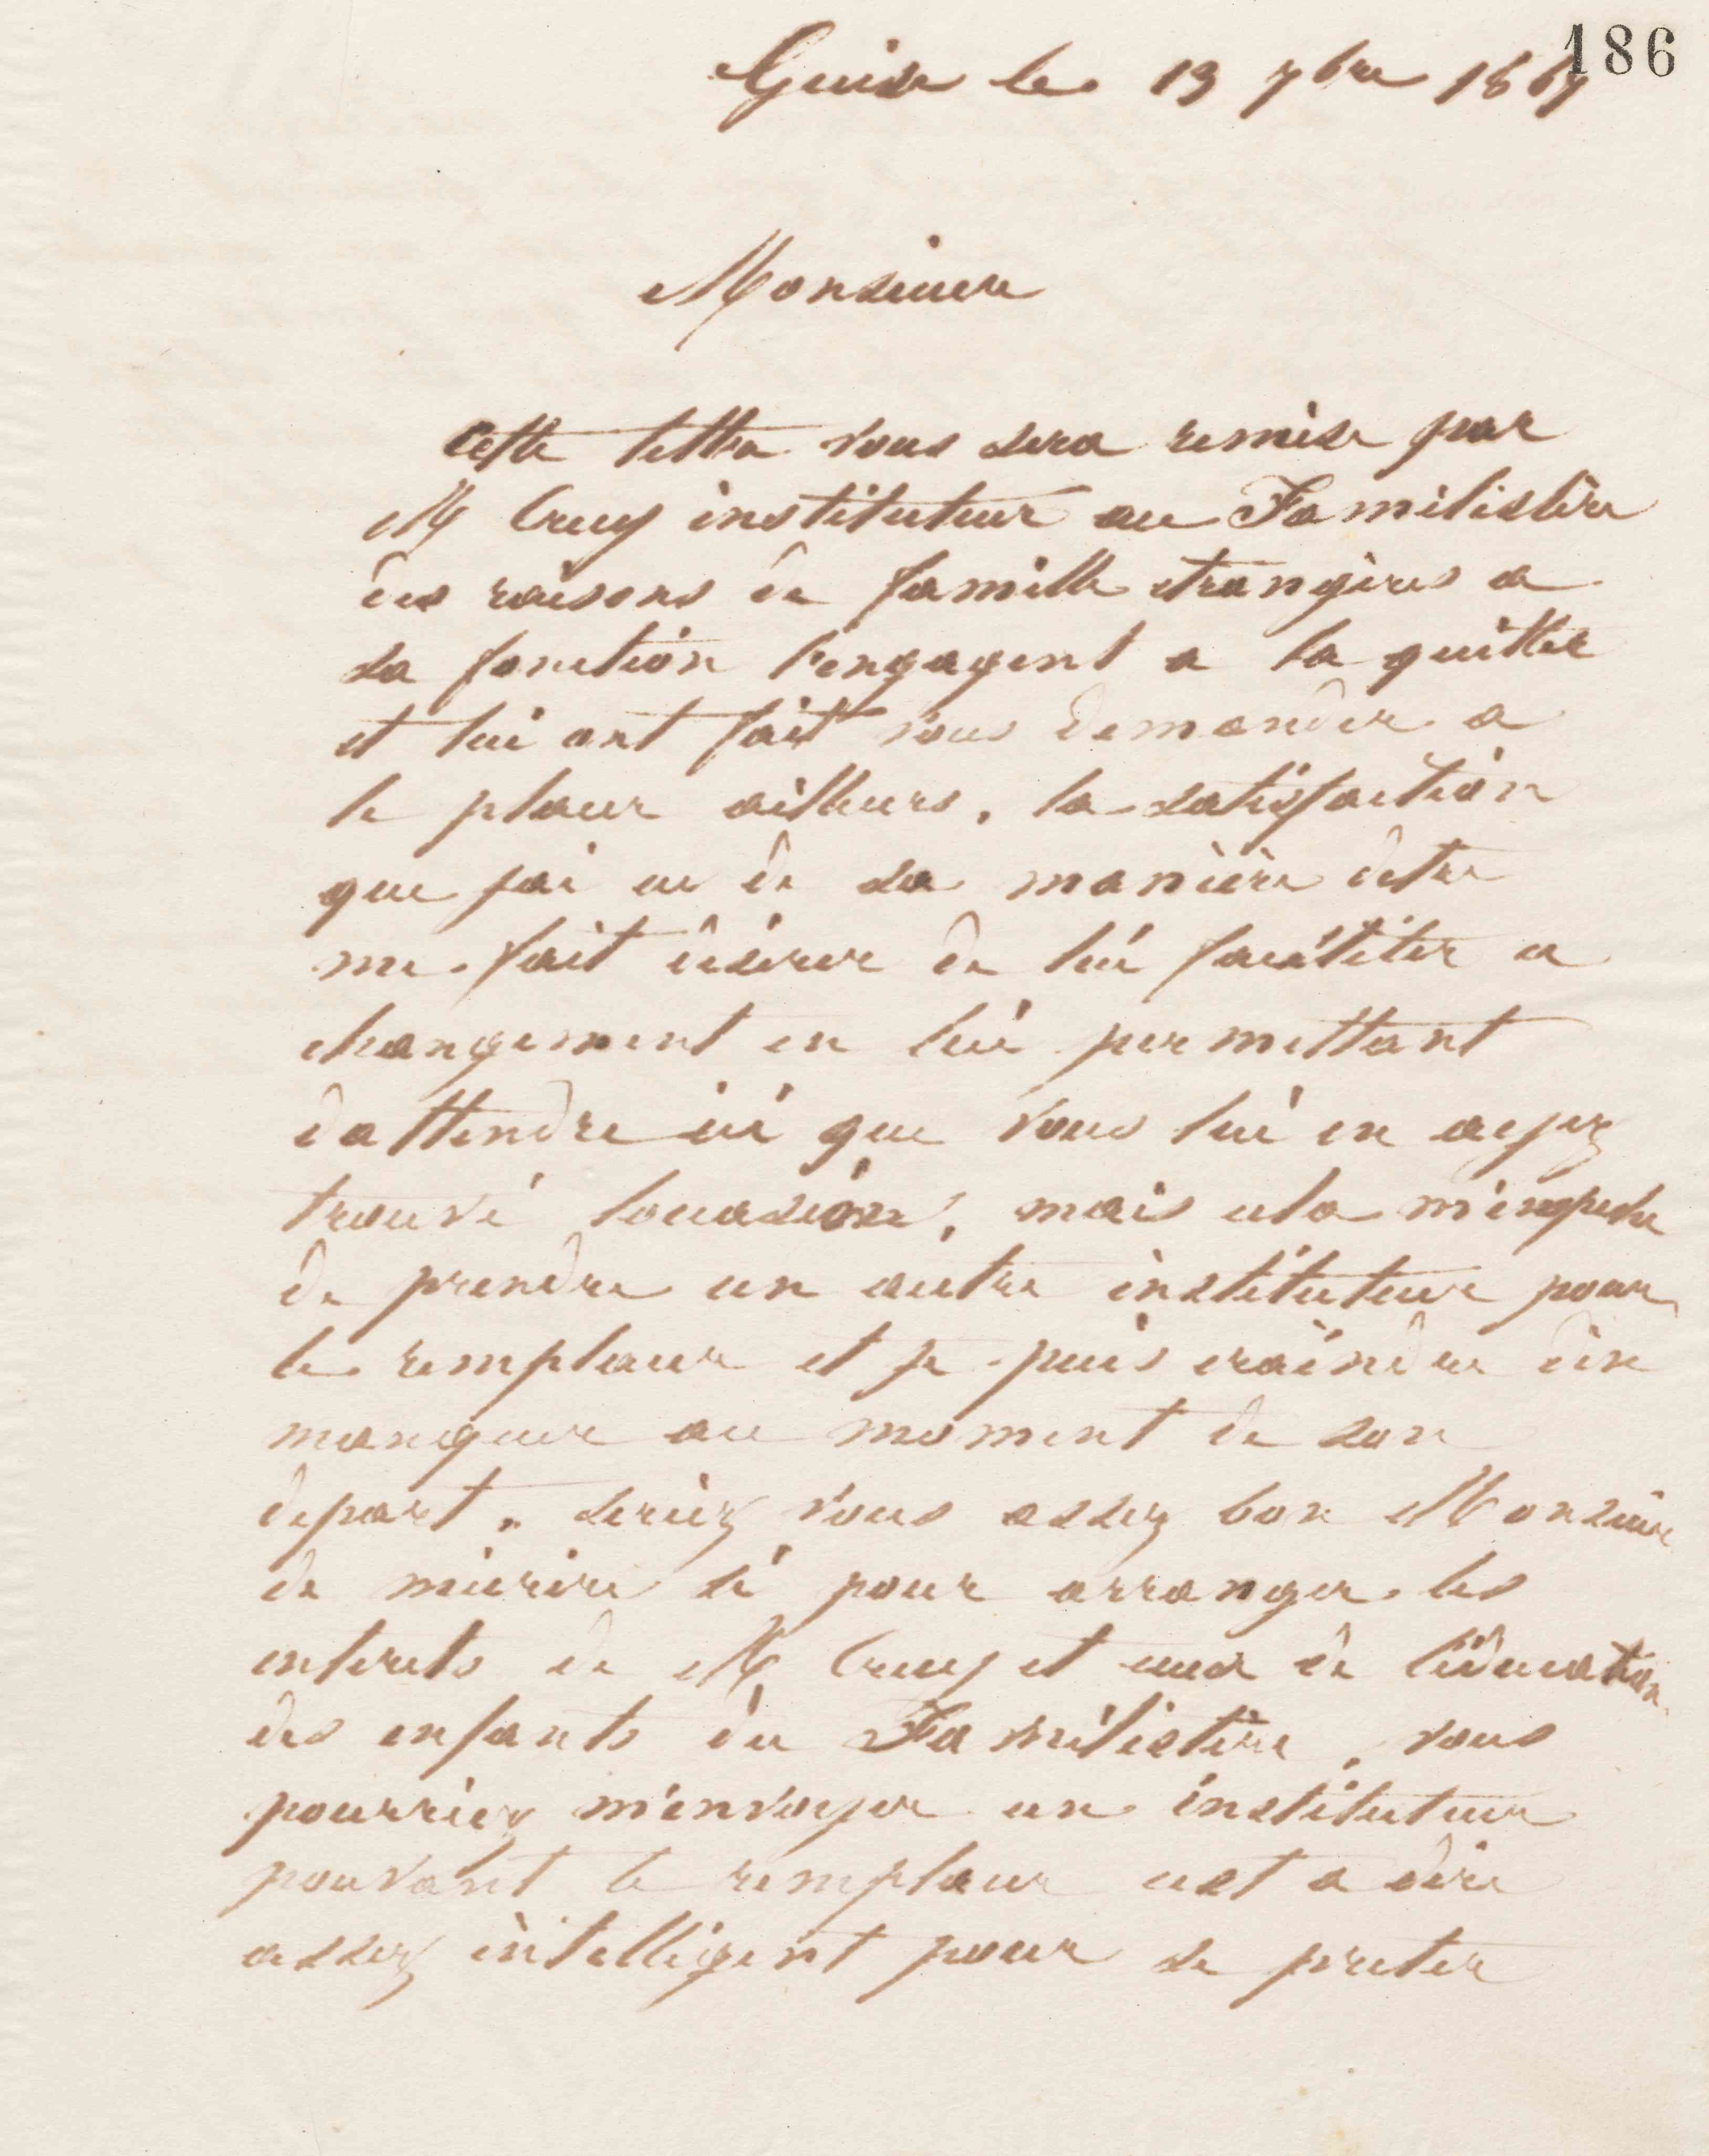 186
Guise le 13 7bre 1867
Monsieur
Cette lettre vous sera remise par
M Cruy instituteur au Familistère
des raisons de famille etrangères a
sa fonction l'engagent a la quitter
et lui ont fait vous demander a
le placer ailleurs, la satisfaction
que jai eu de sa manière detre
me fait désirer de lui faciliter ce
changement en lui permettant
dattendre ici que vous lui en ayez
trouvé loccasion, mais cela m'empeche
de prendre un autre instituteur pour
le remplacer et je puis craindre d'en
manquer au moment de son
depart. seriez vous assez bon Monsieur
de mécrire si pour arranger les
interets de M Cruy et ceux de léducation
des enfants du Familistère, vous
pourriez m'envoyer un instituteur
pouvant le remplacer cest a dire
assez intelligent pour se preter